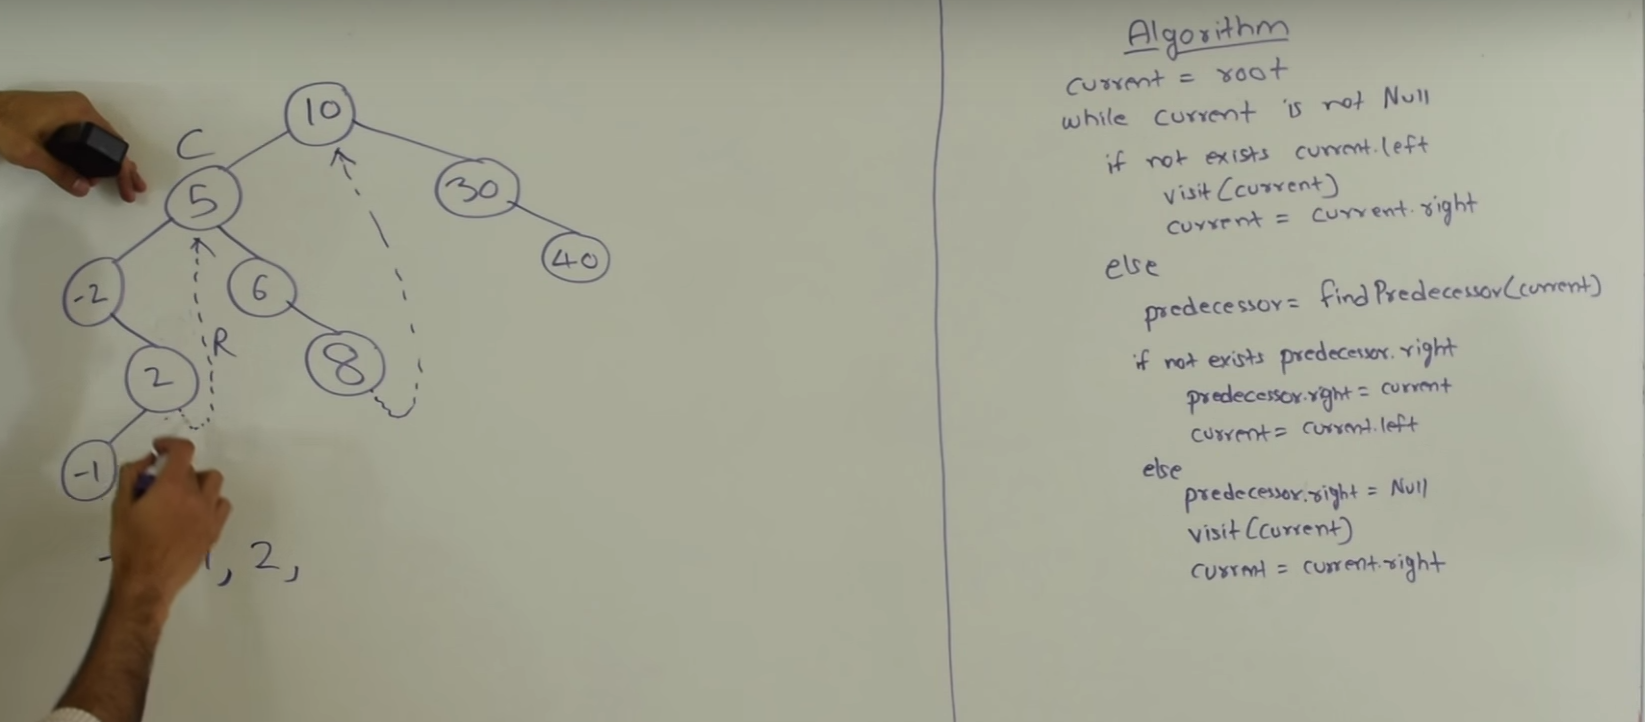 10
C
5
30
-2
6
40
R
2
8
-1
, 2,
Algorithm
current = root
while current is not Null
if not exists current.left
visit(current)
current = current.right
else
predecessor = findPredecessor(current)
if not exists predecessor.right
predecessor.right = current
current = current.left
else
predecessor.right = Null
visit(current)
current = current.right